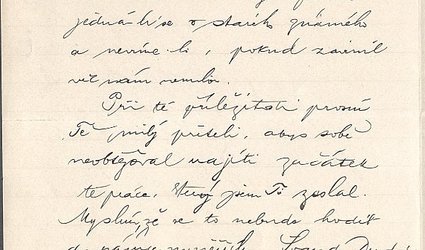 jedná-li se o starého známého
a nevíme-li, pokud zavinil
věc nám
Při té příležitosti prosím
Tě, milý příteli, abys sobě
neobtěžoval najíti začátek
té práce, kterou jsem Ti zaslal.
Myslím, že se to nebude hodit
do